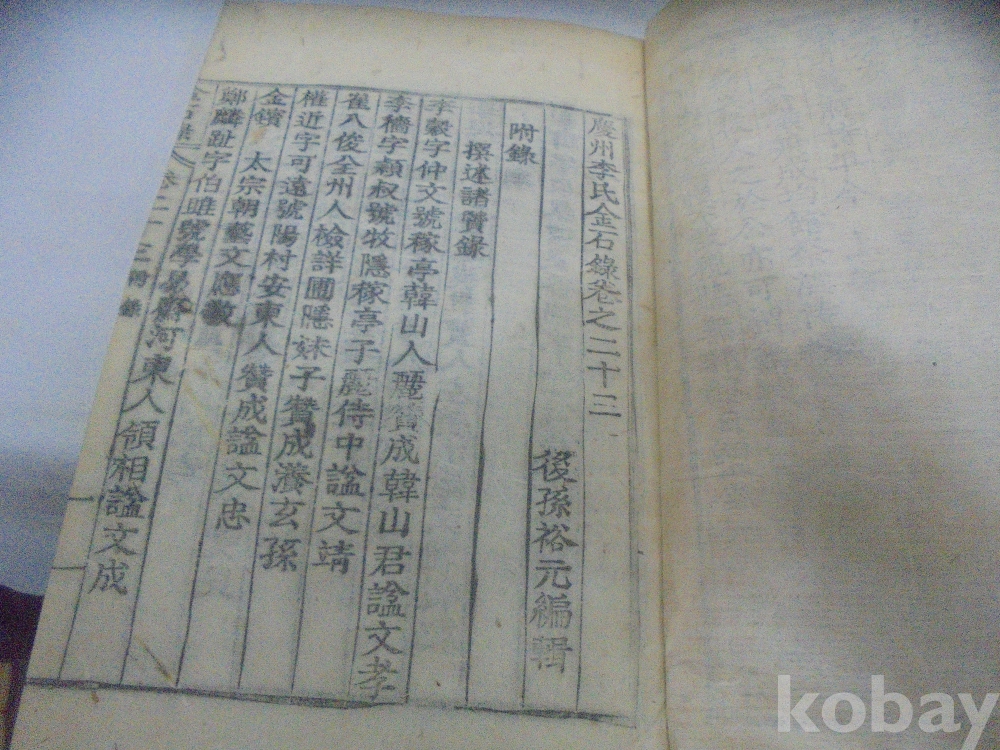 慶州李氏金石錄卷之二十三
後孫裕元編輯
附錄
撰述諸賢錄
李穀字仲文號稼亭韓山人麗贊成韓山君謚文孝
李穡字穎叔號牧隱稼亭子麗侍中謚文靖
崔八俊全州人檢詳圃隱妹子贊成瀁玄孫
權近字可遠號陽村安東人贊成謚文忠
金鑌 太宗朝藝文應敎
鄭麟趾字伯睢號學易齋河東人領相謚文成
卷二十三附錄
kobay